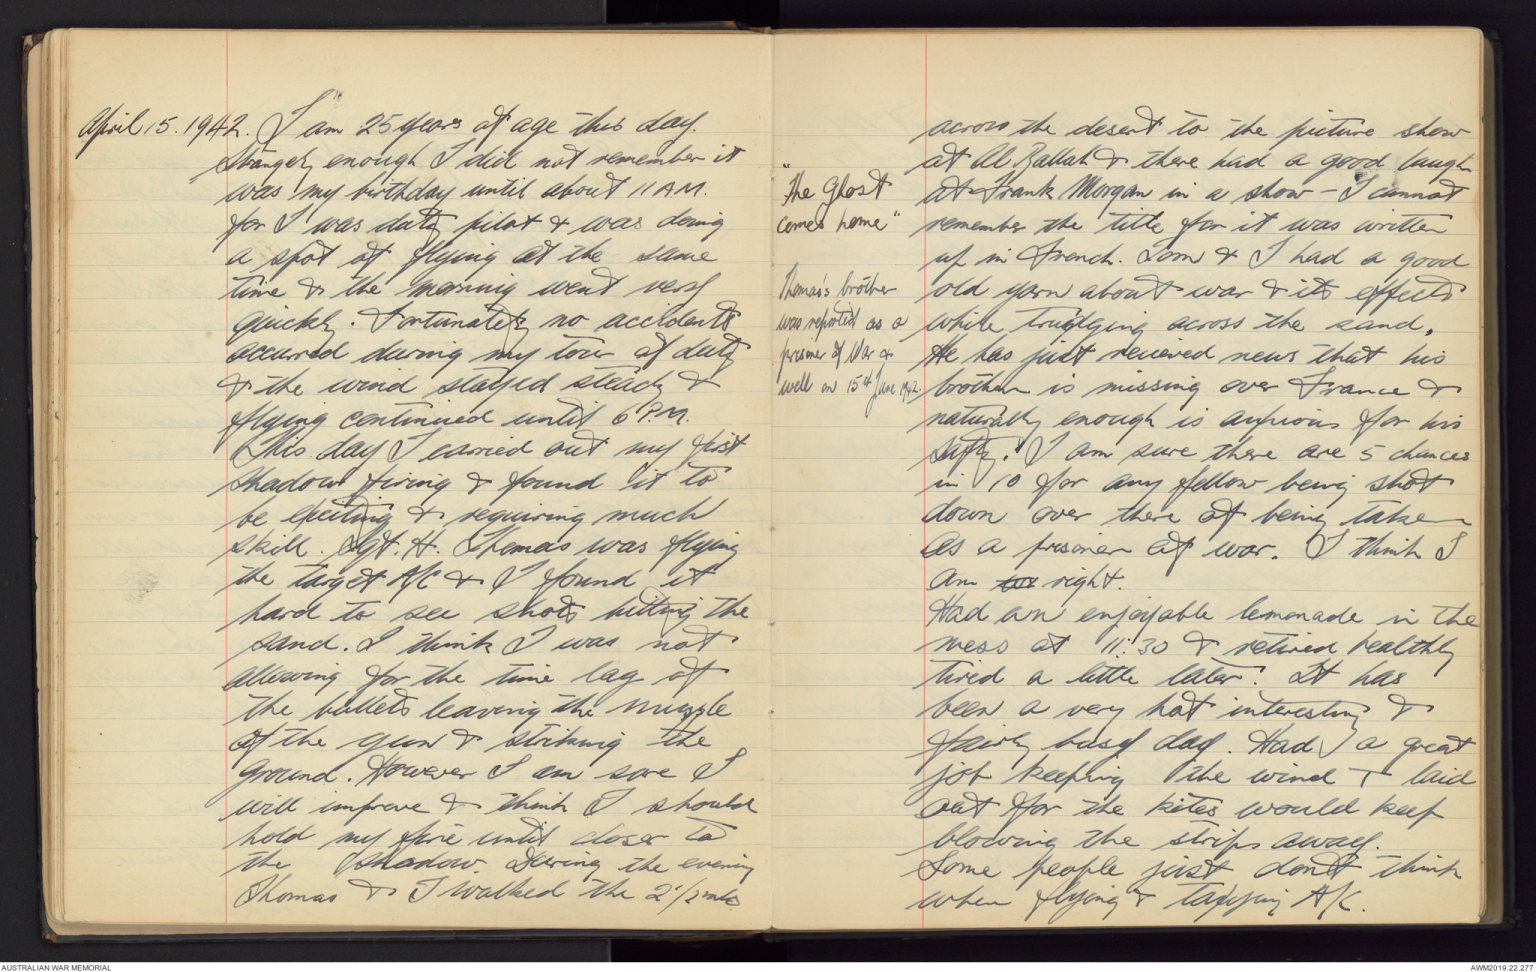 April 15. 1942. I am 25 years of age this day.
Strangely enough I did not remember it
was my birthday until about 11 A.M.
for I was duty pilot & was doing
a spot of flying at the same
time & the morning went very
quickly. Fortunately no accidents
occurred during my tour of duty
& the wind stayed steady &
flying continued until 6 P.M.
This day I carried out my first
shadow firing & found it to
be exciting & requiring much
skill. Sgt. H. Thomas was flying
the target A/C & I found it
hard to see shots hitting the
sand. I think I was not
allowing for the time lag of
the bullets leaving the muzzle
of the gun & striking the
ground. However I am sure I
will improve & think I should
hold my fire until closer to
the shadow. During the evening
Thomas & I walked the 2 1/2 mls
across the desert to the picture show
at Al Ballah & there had a good laugh
at Frank Morgan in a show - I cannot
remember the title for it was written
up in French. Tom & I had a good
old yarn about war & its effects
while trudging across the sand.
He has just recieved news that his
brother is missing over France &
naturally enough is anxious for his
safty. I am sure there are 5 chances
in 10 for any fellow being shot
down over there of being taken
as a prisoner of war. I think I
am right.
Had an enjoyable lemonade in the
mess at 11:30 & retired healthly
tired a little later. It has
been a very hot interesting &
fairly busy day. Had a great
job keeping the wind T laid
out for the kites would keep
blowing the strips away.
Some people just don't think
when flying & taxying A/C.
"The Ghost
comes home"
Thomas's brother
was reported as a
prisoner of War &
well on 15th June 1942.
AUSTRALIAN WAR MEMORIAL
AWM2019.22.277